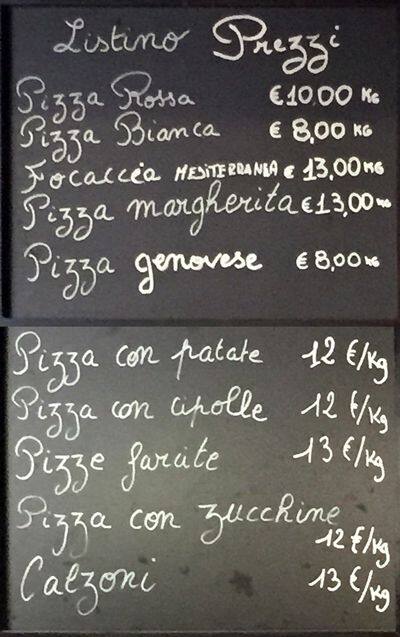 Listino Prezzi
Pizza Rossa €10,00 KG
Pizza Bianca € 8,00 KG
Focaccia MEDITERRANEA € 13,00 KG
Pizza margherita €13,00 KG
Pizza genovese €8,00 KG
Pizza con patate 12 €/Kg
Pizza con cipolle 12 €/Kg
Pizze farcite 13 €/Kg
Pizza con zucchine
12 €/Kg
Calzoni 13 €/Kg